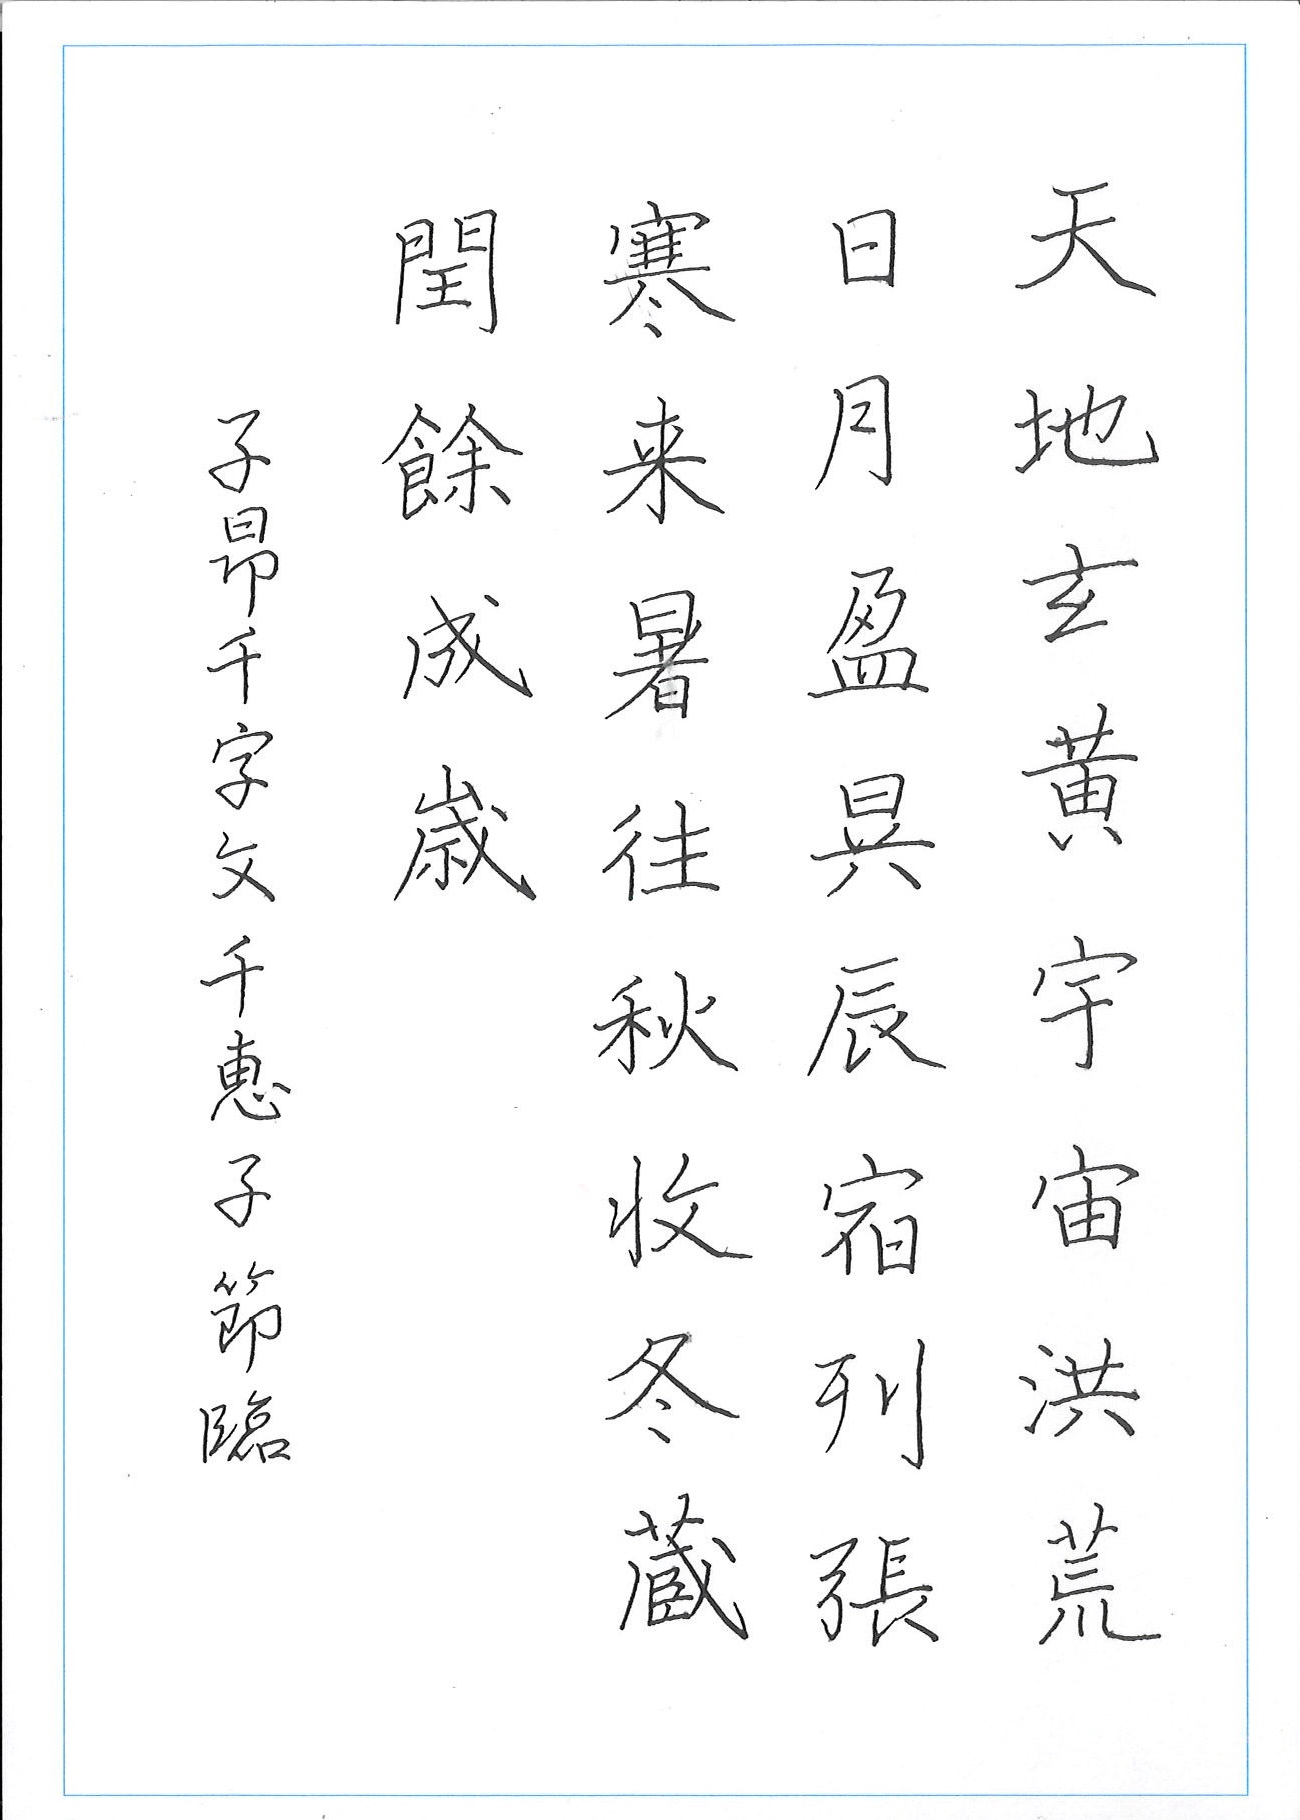 天地玄黄宇宙洪荒
日月盈昃辰宿列張
寒来暑往秋收冬蔵
閏餘成歳
子昂千字文千恵子節臨